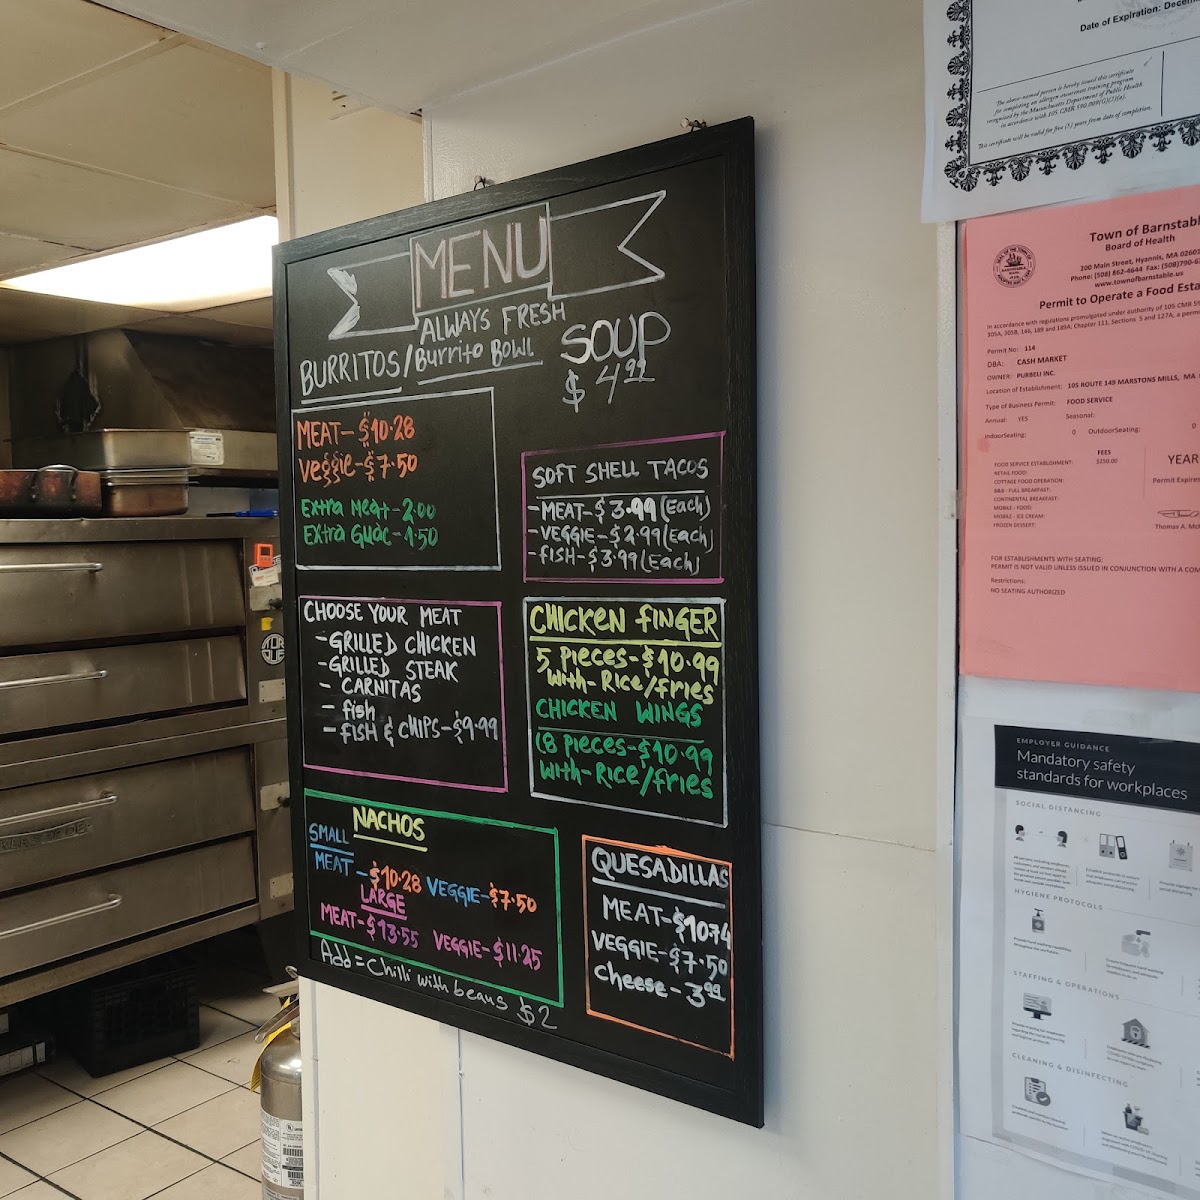 MENU
ALWAYS FRESH
BURRITOS/Burrito BOWL
SOUP
$4.99
MEAT-$10.28
veggie-$7.50
Extra Meat-2.00
Extra Guac-1.50
SOFT SHELL TACOS
-MEAT-$3.99(Each)
-VEGGIE-$2.99(Each)
-FISH-$3.99(Each)
CHOOSE YOUR MEAT
-GRILLED CHICKEN
-GRILLED STEAK
- CARNITAS
- fish
- FISH & CHIPS-$9.99
CHICKEN FINGER
5 Pieces-$10.99
With-Rice/fries
CHICKEN WINGS
(8 Pieces-$10.99
With-Rice/fries
NACHOS
SMALL
MEAT-$10.28 VEGGIE-$7.50
LARGE
MEAT-$13.55 VEGGIE-$11.25
Add=Chilli with beans $2
QUESADILLAS
MEAT-$10.74
VEGGIE-$7.50
Cheese-3.99
Date of Expiration:
The above-named person is hereby issued this certificate
for completing an allergen awareness training program
recognized by the Massachusetts Department of Public Health
in accordance with 105 CMR 590.009(G)(3)(a).
This certificate will be valid for five (5) years from date of completion.
Town of
Board of Health
200 Main Street, Hyannis, MA 02601
Phone: (508) 862-4644 Fax:
www.townofbarnstable.us
Permit to Operate a Food
In accordance with regulations promulgated under authority of
305A, 305B, 146, 189 and 189A, Chapter 111, Sections 5 and 127A, a
Permit No: 114
DBA: CASH MARKET
OWNER: PURBELI INC.
Location of Establishment: 105 ROUTE 149 MARSTONS MILLS, MA
Type of Business Permit: FOOD SERVICE
Annual: YES Seasonal:
IndoorSeating: 0 OutdoorSeating: 0
FEES
FOOD SERVICE ESTABLISHMENT: $250.00
RETAIL FOOD:
COTTAGE FOOD OPERATION:
B&B - FULL BREAKFAST:
CONTINENTAL BREAKFAST:
MOBILE - FOOD:
MOBILE - ICE CREAM:
FROZEN DESSERT:
YEAR
Permit
Thomas A.
FOR ESTABLISHMENTS WITH SEATING:
PERMIT IS NOT VALID UNLESS ISSUED IN CONJUNCTION WITH A
Restrictions:
NO SEATING AUTHORIZED
EMPLOYER GUIDANCE
Mandatory safety
standards for workplaces
SOCIAL DISTANCING
HYGIENE PROTOCOLS
STAFFING & OPERATIONS
CLEANING & DISINFECTING